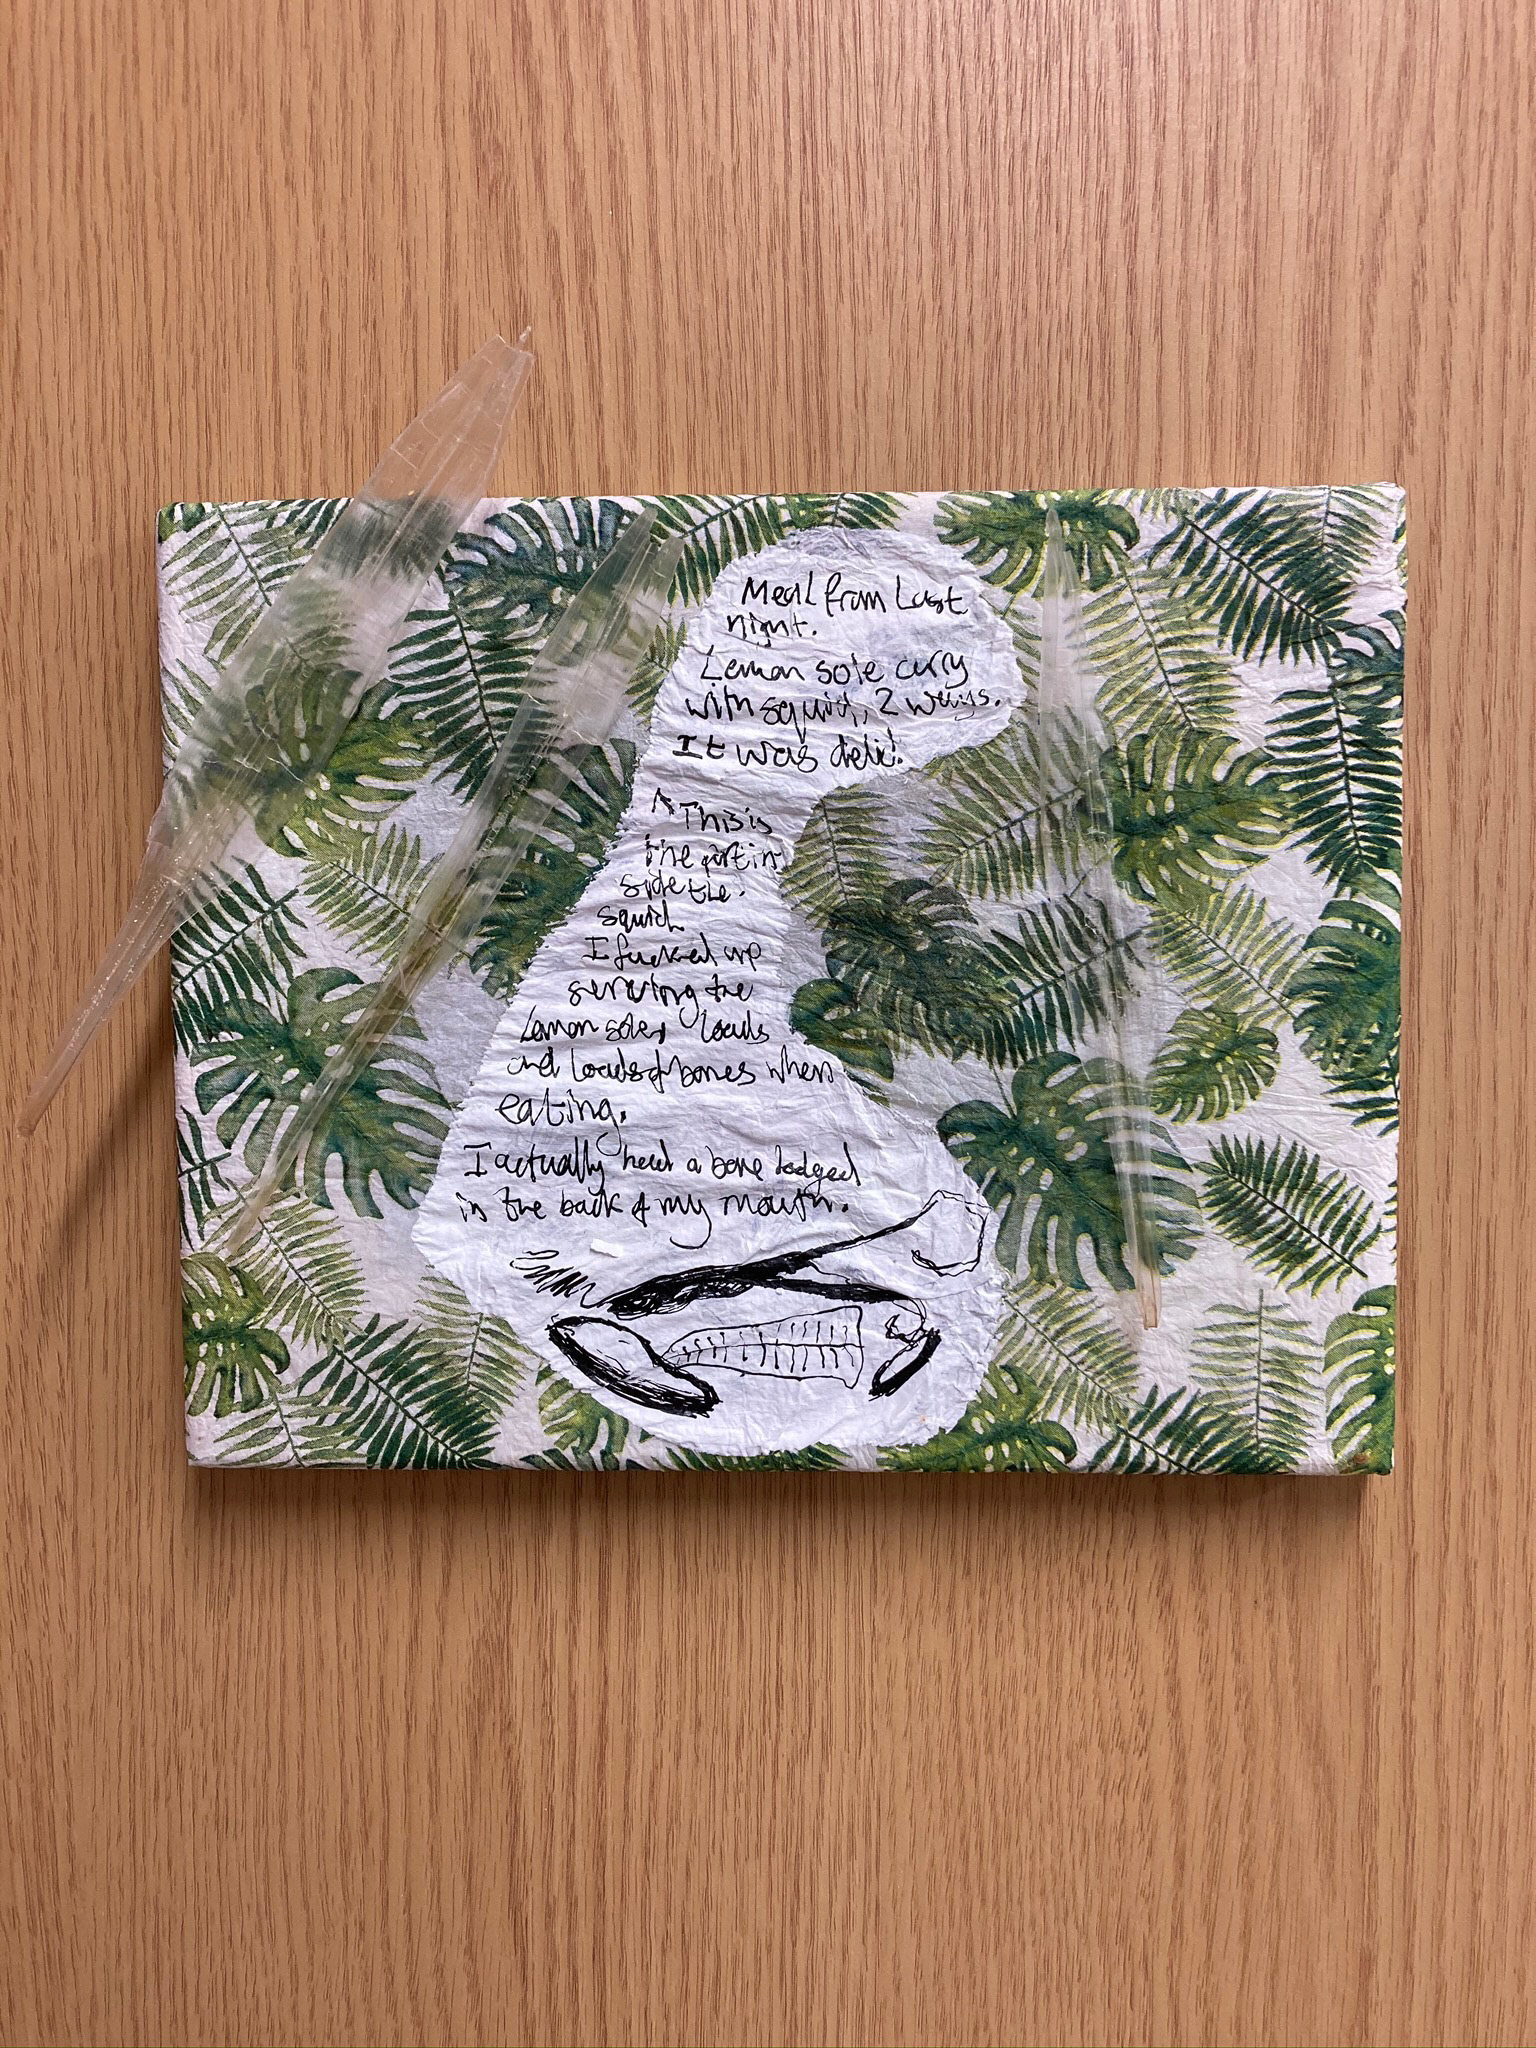 Meal from Last
night.
Lemon sole curry
with squid, 2 ways.
It was deli!
↑ This is
the part in
side the.
squid
I fucked up
serving the
Lemon sole, loads
and loads of bones when
eating.
I actually had a bone lodged
in the back of my mouth.